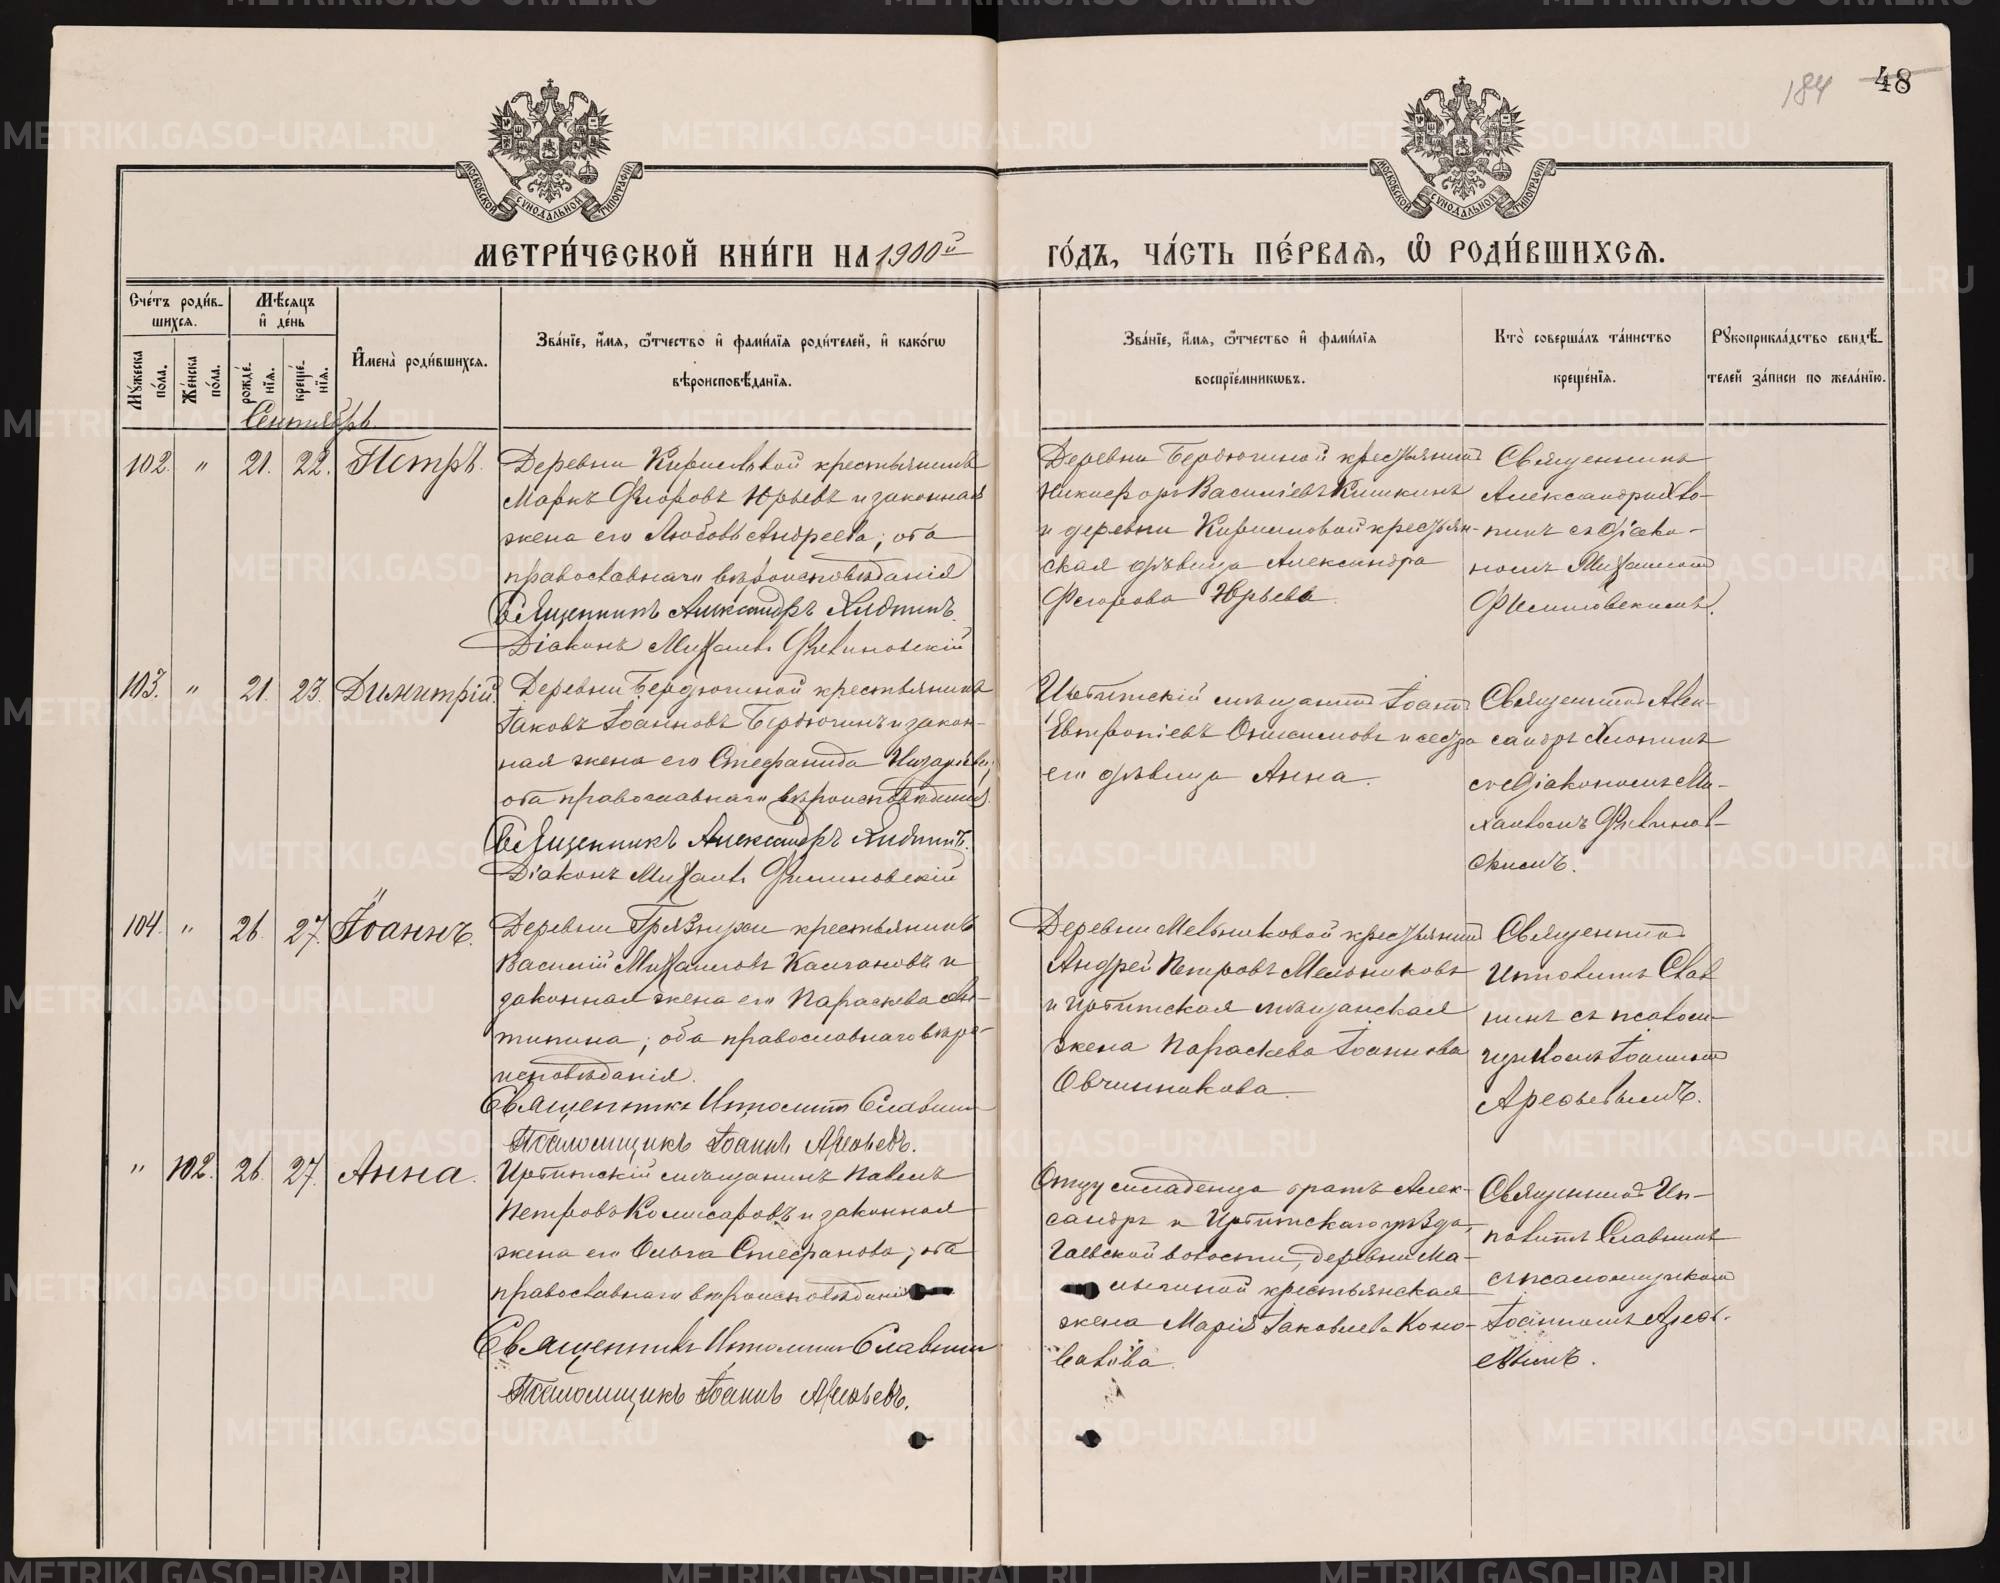 184 48
МОСКОВСКОЙ СѴНОДАЛЬНОЙ ТИПОГРАФІИ
МОСКОВСКОЙ СѴНОДАЛЬНОЙ ТИПОГРАФІИ
МЕТРИ́ЧЕСКОЙ КНИ́ГИ НА 1900й ГО́ДЪ, ЧА́СТЬ ПЕ́РВАѦ, Ѡ҆ РОДИ́ВШИХСѦ.
Сче́тъ роди́в-
шихсѧ.
Мѣ́сѧцъ
и҆ де́нь
Мꙋ́жеска
по́ла.
Же́нска
по́ла.
рожде́-
нїѧ.
креще́-
нїѧ.
И҆мена̀ роди́вшихсѧ.
Зва́нїе, и҆́мѧ, ѻ҆́тчество и҆ фами́лїѧ роди́телей, и҆ како́гѡ
вѣроисповѣ́данїѧ.
Зва́нїе, и҆́мѧ, ѻ҆́тчество и҆ фами́лїѧ
воспрїе́мникѡвъ.
Кто̀ соверша́лъ та́инство
креще́нїѧ.
Рꙋкоприкла́дство свидѣ́-
телей за́писи по жела́нїю.
Сентябрь
102. " 21. 22. Петръ.
Деревни Кирилловой крестьянинъ
Маркъ Ѳеоровъ Юрьевъ и законная
жена его Любовь Андреева, оба
православнаго вѣроисповѣданія
Священникъ Александръ Хлопинъ.
Діаконъ Михаилъ Филиновскій
Деревни Бердюгиной крестьянинъ
Никифоръ Васильевъ Кишкинъ
и деревни Кирилловой крестьян-
ская дѣвица Александра
Ѳеорова Юрьева
Священникъ
Александръ Хло-
пинъ съ діако-
номъ Михаиломъ
Филиновскимъ.
103. " 21. 23. Димитрій.
Деревни Бердюгиной крестьянинъ
Іаковъ Іоанновъ Бердюгинъ и закон-
ная жена его Стефанида Назарова,
оба православнаго вѣроисповѣданія.
Священникъ Александръ Хлопинъ.
Діаконъ Михаилъ Филиновскій
Ирбитскій мѣщанинъ Іоаннъ
Евтропіевъ Онисимовъ и сестра
его дѣвица Анна.
Священникъ Алек-
сандръ Хлопинъ
съ діакономъ Ми-
хаиломъ Филинов-
скимъ.
104. " 26. 27. Іоаннъ.
Деревни Грязнухи крестьянинъ
Василій Михаиловъ Калгановъ и
законная жена его Параскева Ан-
типина; оба православнаго вѣро-
исповѣданія.
Священникъ Ипполитъ Славнинъ
Псаломщикъ Іоаннъ Арефьевъ.
Деревни Мельниковой крестьянинъ
Андрей Петровъ Мельниковъ
и Ирбитская мѣщанская
жена Параскева Іоаннова
Овчинникова.
Священникъ
Ипполитъ Слав-
нинъ съ псалом-
щикомъ Іоанномъ
Арефьевымъ.
" 102. 26. 27. Анна.
Ирбитскій мѣщанинъ Павелъ
Петровъ Комисаровъ и законная
жена его Ольга Стефанова, оба
православнаго вѣроисповѣданія
Священникъ Ипполитъ Славнинъ
Псаломщикъ Іоаннъ Арефьевъ.
Отцу младенца братъ Алек-
сандръ и Ирбитскаго уѣзда,
Гаевской волости, деревни Ма-
лыгиной крестьянская
жена Марія Іаковлева Коно-
валова.
Священникъ Ип-
политъ Славнинъ
съ псаломщикомъ
Іоанномъ Арефь-
евымъ.